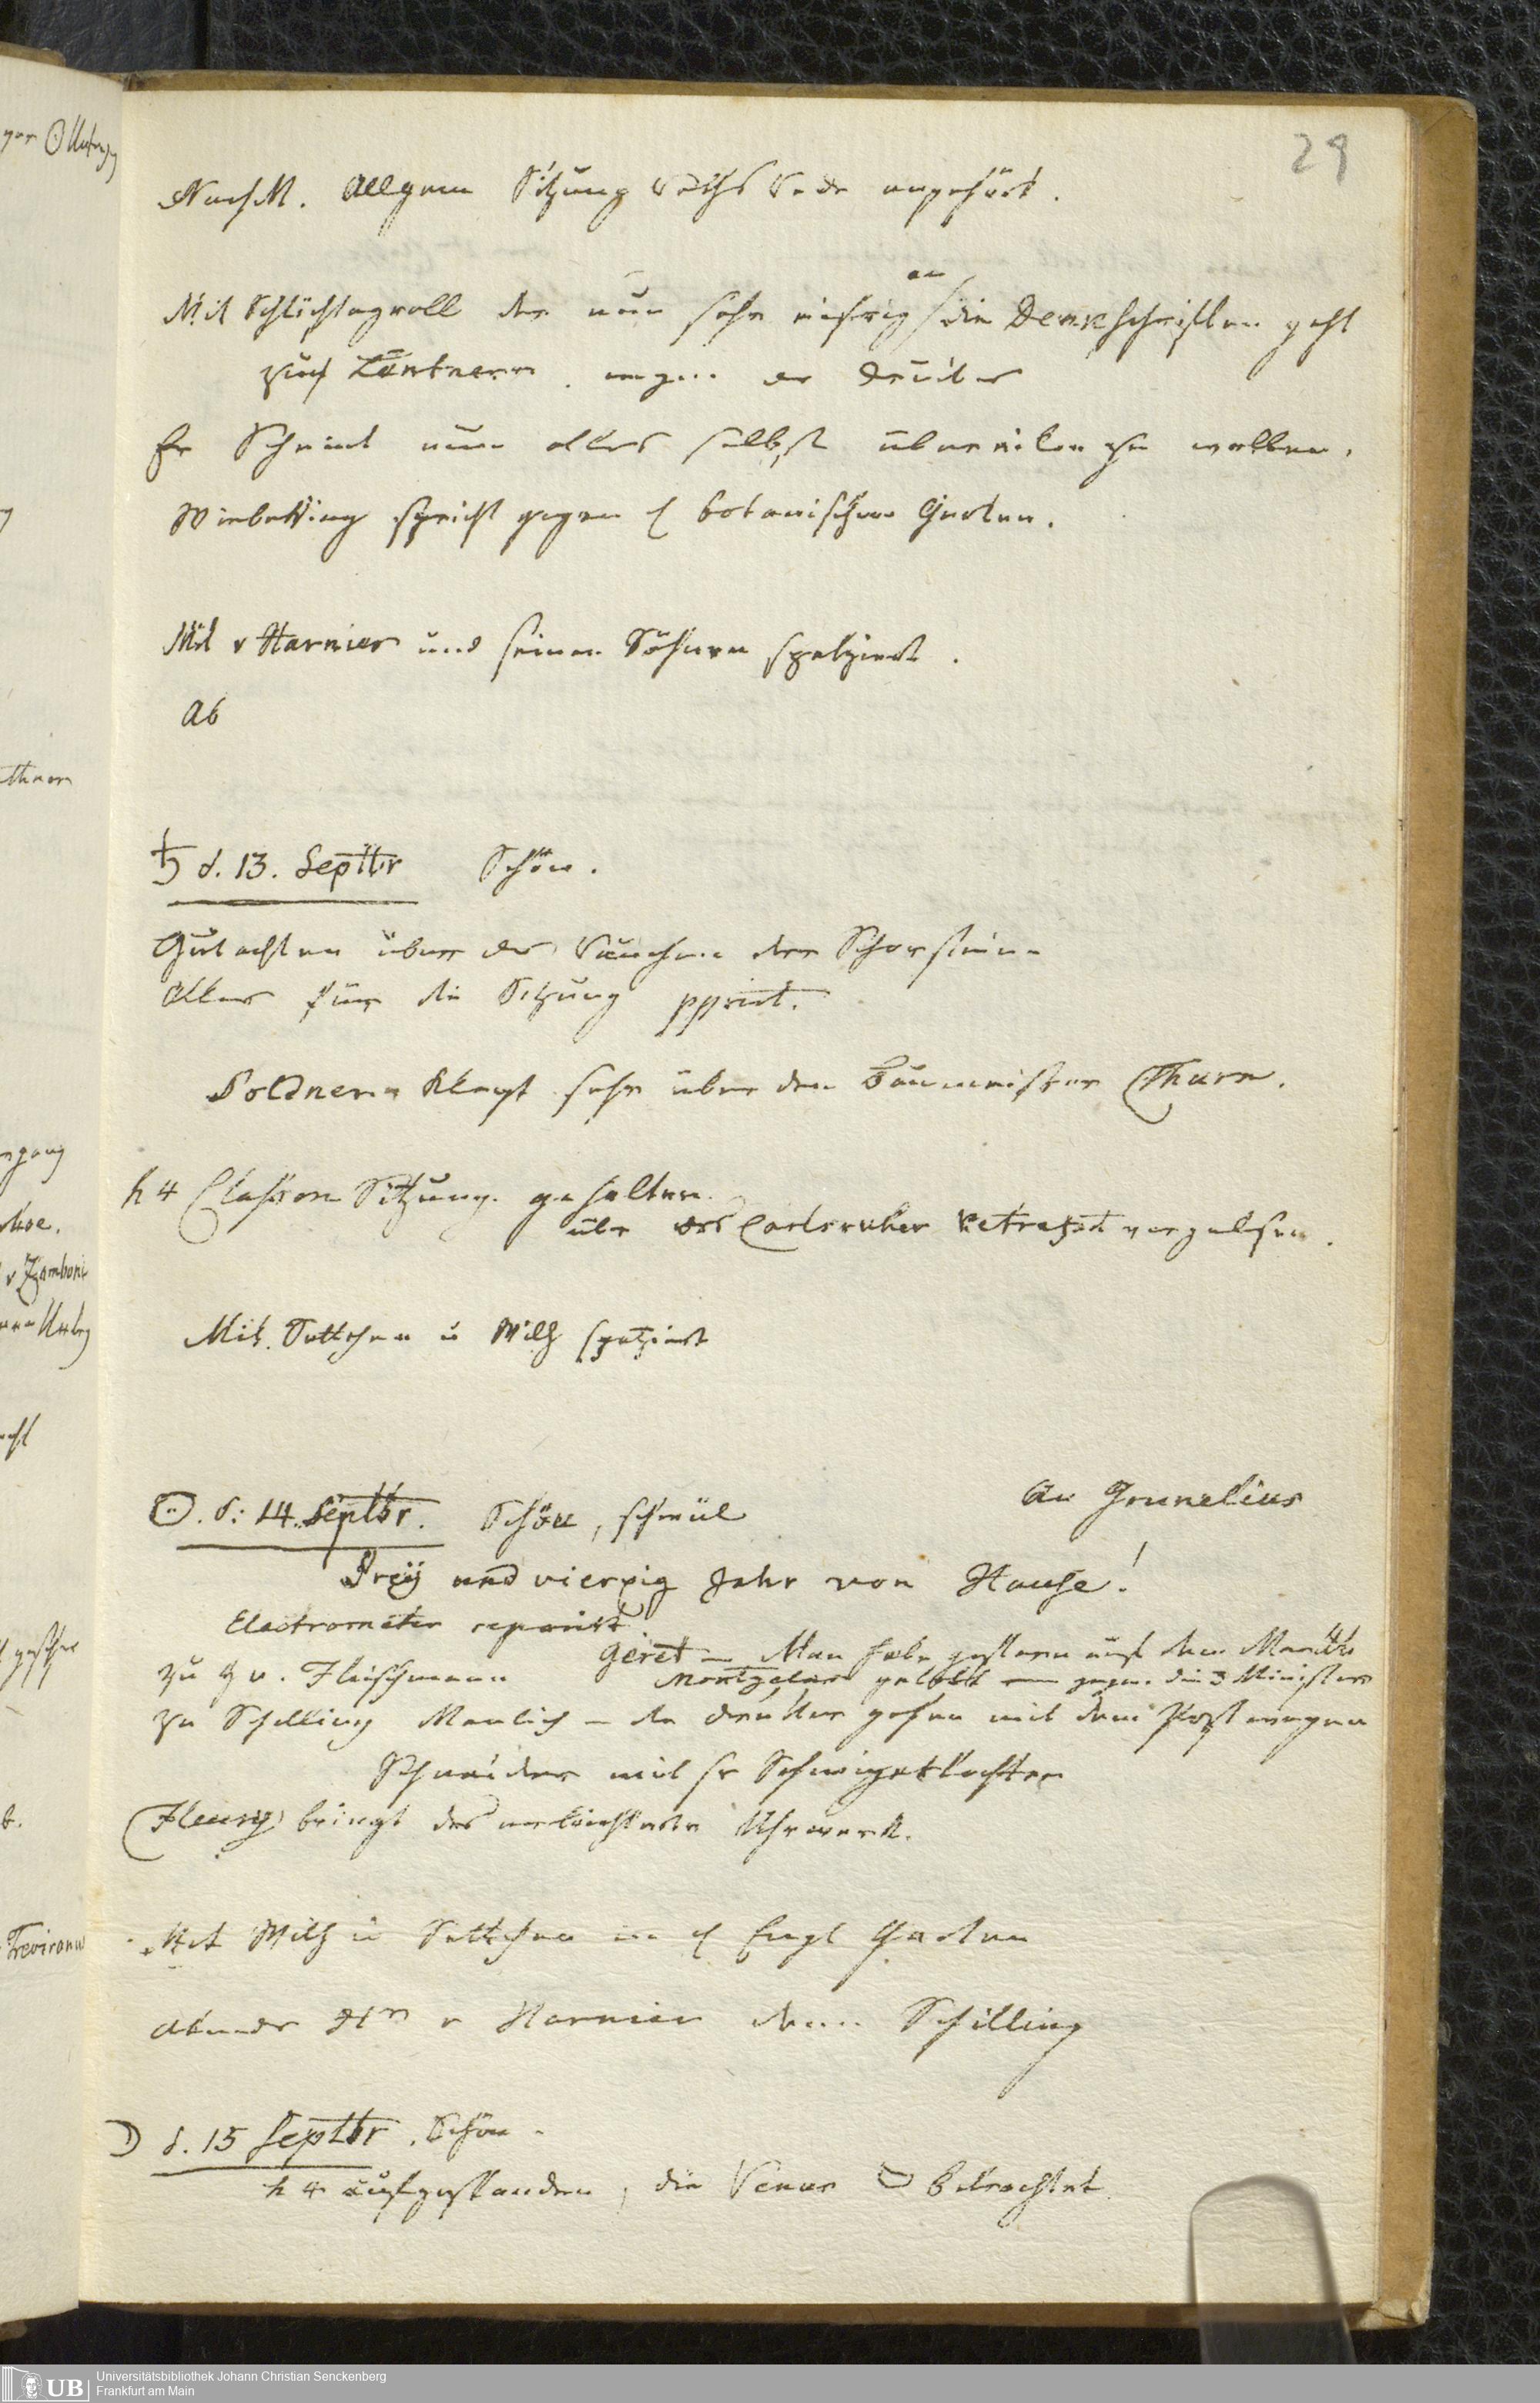 29
NachM. Allgem Sitzung Roths Rede angehört.
an
Mit Schlichtegroll der nun sehr eifrig die Denkschriften geht
zu Zentnern. wegen der Drucker
Er scheint nun alles selbst übereilen zu wollen.
Wiebeking spricht gegen d botanischen Garten.
Mit v Harnier und seinen Söhnen spatziert.
Ab
♄ d. 13. Septbr Schön.
Gutachten über das Rauchen der Schorsteine
Alles für die Sitzung pprirt.
Soldner klagt sehr über den Baumeister Thurn.
h 4 Classen Sitzung gehalten.
über das Carlsruher vorgelesen.
Mit Settchen u Wilh spatziert
☉. d. 14. Septbr. Schön, schwül An Grunelius
Drey und vierzig Jahr von Hause!
Electrometer reparirt
Geret — Man habe gestern auf dem Markte
zu H v. Fleischmann Montgelas gelobt gegen die 3 Minister
zu Schelling Manlich — die gehen mit dem Postwagen
Schneider mit sr Schwiegertochter
Fleury bringt das Uhrwerk.
Mit Wilh u Settchen in d Engl Garten
Abends Hrn v Harnier dann Schilling
☽ d. 15 Septbr. Schön.
h 4 aufgestanden, die Venus betrachtet
UB Universitätsbibliothek Johann Christian Senckenberg
Frankfurt am Main